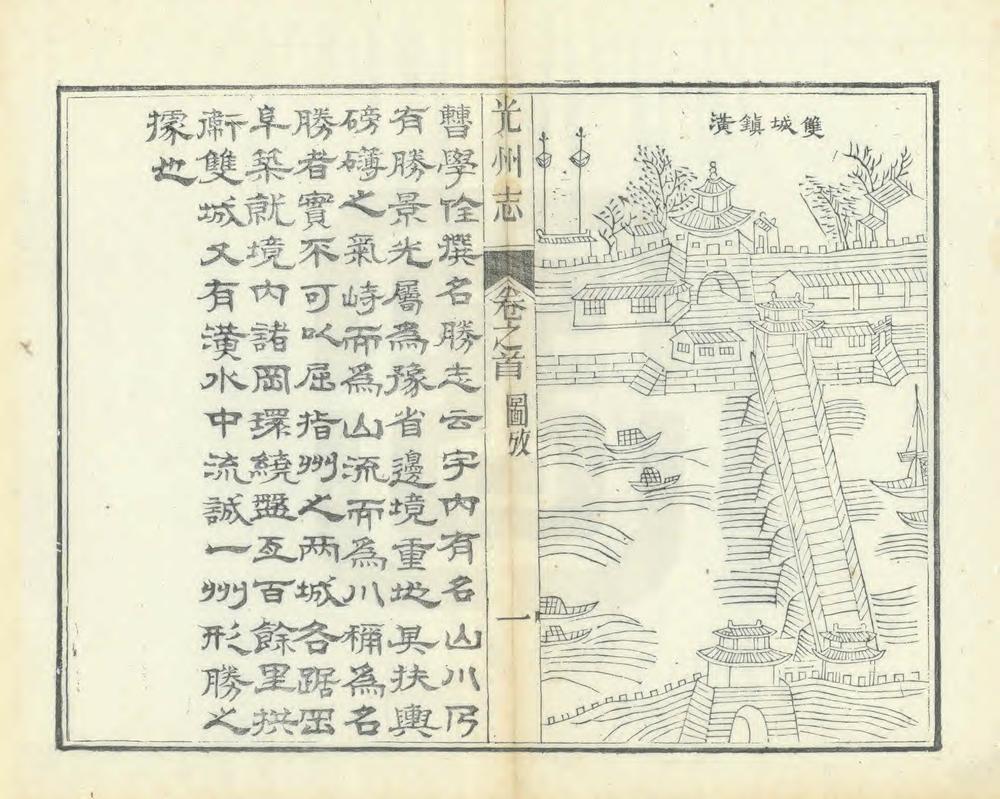 雙城鎮潢
光州志
卷之首
圖攷
一
曹學佺撰名勝志云宇內有名山川乃
有勝景光屬為豫省邊境重地具扶輿
磅礴之氣峙而為山流而為川稱為名
勝者實不可以屈指州之两城各踞岡
阜築就境內諸岡環繞盤亙百餘里拱
衛雙城又有潢水中流誠一州形勝之
據也